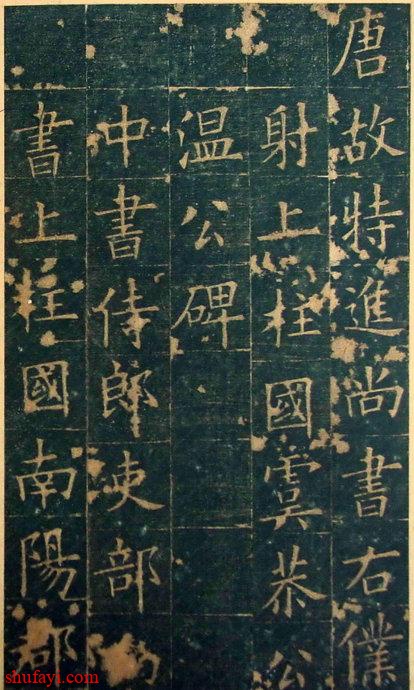 唐故特進尚書右僕
射上柱國虞恭公
温公碑
中書侍郎吏部
書上柱國南陽郡
shufayi.com